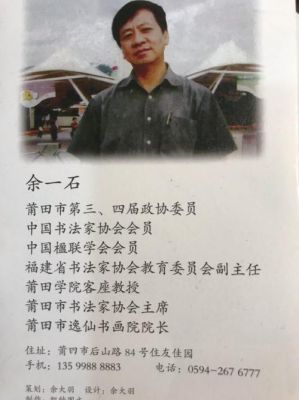 余一石
莆田市第三、四届政协委员
中国书法家协会会员
中国楹联学会会员
福建省书法家协会教育委员会副主任
莆田学院客座教授
莆田市书法家协会主席
莆田市逸仙书画院院长
住址：莆四市后山路 84 号住友佳园
手机：135 9988 8883 电话：0594-267 6777
策划：余大羽 设计：余大羽